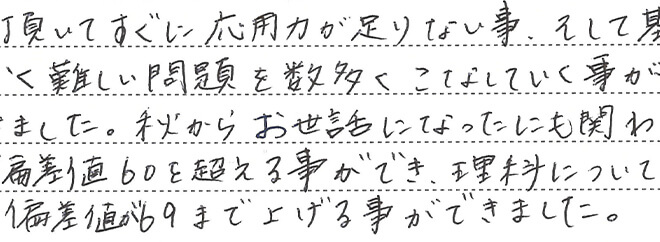 頂いてすぐに応用力が足りない事、そして基
く難しい問題を数多くこなしていく事が
ました。秋からお世話になったにも関わ
偏差値60を超える事ができ、理科について
偏差値が69まで上げる事ができました。